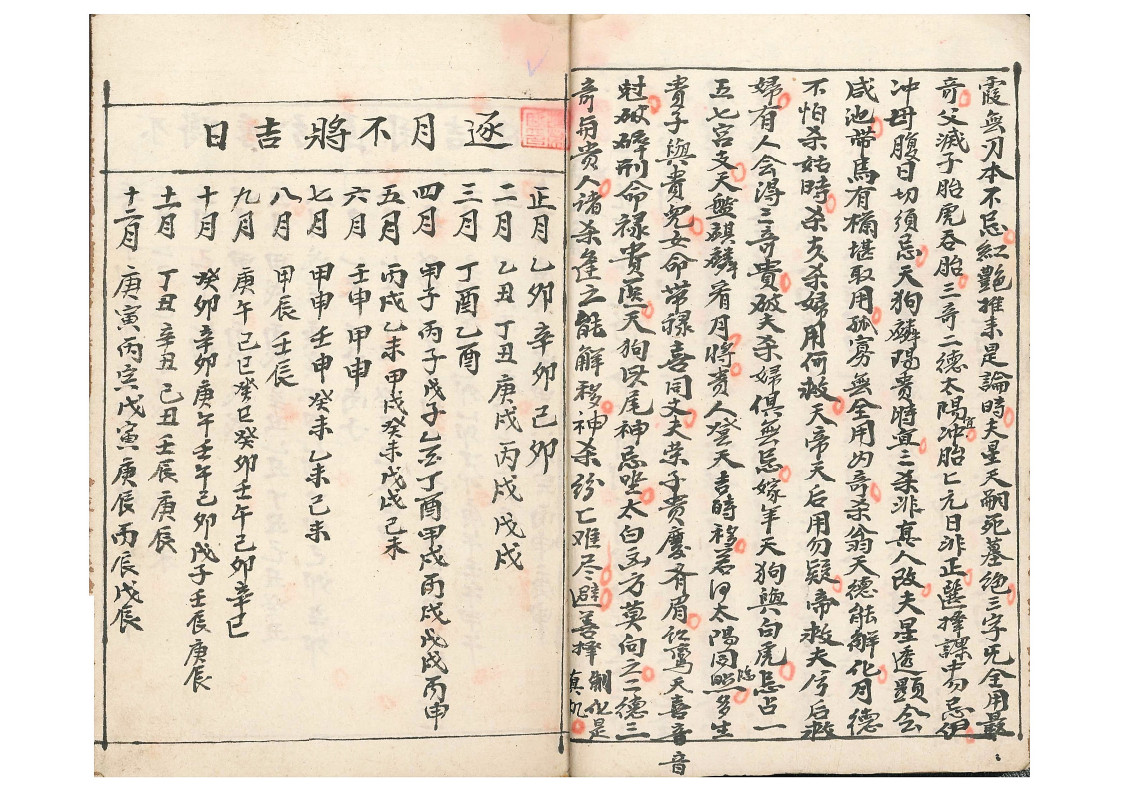 霞無刃本不忌紅艷推來是論時夫星天嗣死墓絕三字旡全用最
奇父滅子胎虎吞胎三奇二德太陽宜冲胎亡元日非正選擇課中勿忌伊
冲母腹日切須忌天狗麟陽貴時宜三殺非真人改夫星透顯會
咸池帶馬有橫堪取用孤寡無全用內奇杀翁天德能解化月德
不怕杀姑時杀亥杀婦用何救天帝天后用勿疑帝救夫兮后救
婦有人会得三奇貴破夫杀婦俱無忌嫁年天狗與白虎忌占一
五七宮支天盤麒麟看月將貴人登天吉時移若得太陽同照臨多生
貴子與貴兒女命帶祿喜同丈夫荣子貴慶齐眉紅鸞天喜音音
尅破碎刑命禄貴無天狗頭尾神忌坐太白凶方莫向之二德三
奇与貴人諸杀逢之能解移神杀紛亡难尽避善擇制化是真机
逐月不將吉日
正月 乙卯 辛卯 己卯
二月 乙丑 丁丑 庚戌 丙戌 戊戌
三月 丁酉 乙酉
四月 甲子 丙子 戊子 乙亥 丁酉 甲戌 丙戌 戊戌 丙申
五月 丙戌 乙未 甲戌 癸未 戊戌 己未
六月 壬申 甲申
七月 甲申 壬申 癸未 乙未 己未
八月 甲辰 壬辰
九月 庚午 己巳 癸巳 癸卯 壬午 己卯 辛巳
十月 癸卯 辛卯 庚午 壬午 己卯 戊子 壬辰 庚辰
十一月 丁丑 辛丑 己丑 壬辰 庚辰
十二月 庚寅 丙寅 戊寅 庚辰 丙辰 戊辰